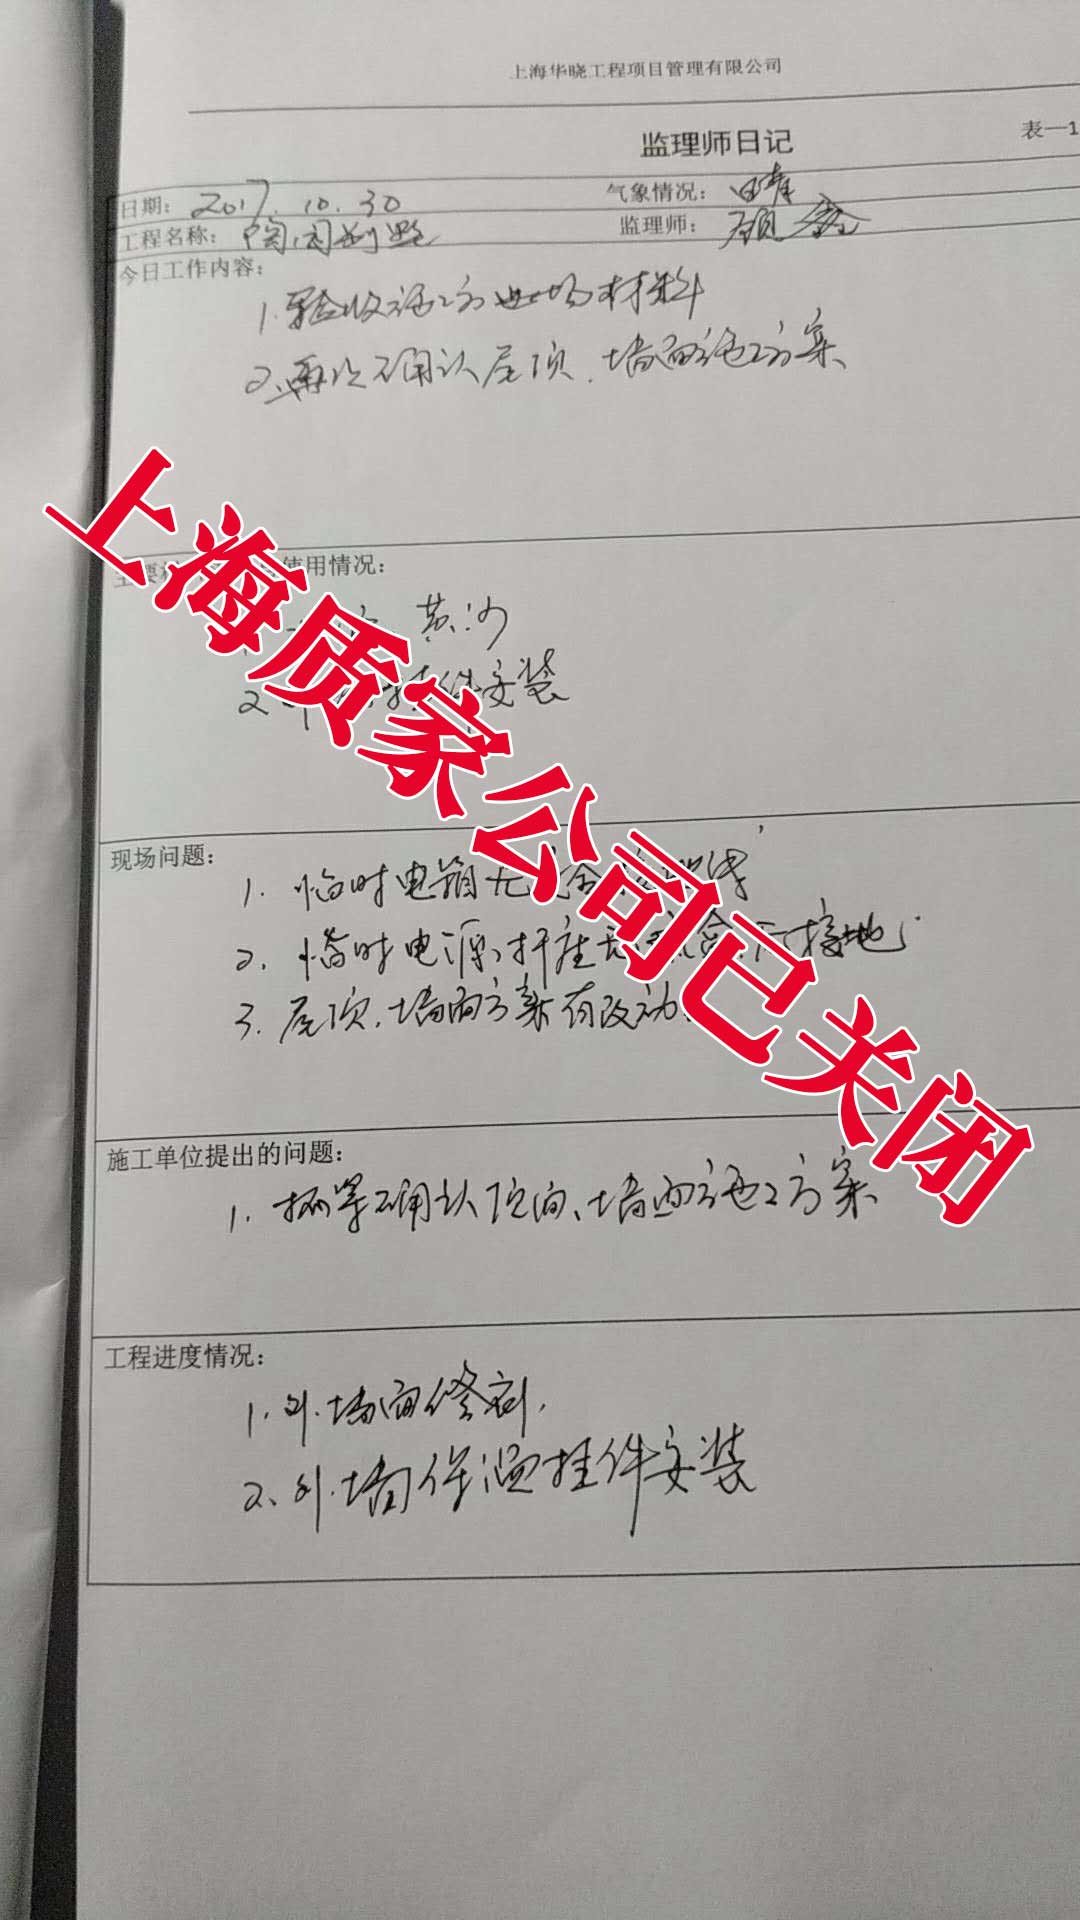 上海华晓工程项目管理有限公司
监理师日记
表一1
日期: 2017.10.30 气象情况: 晴
工程名称: 陶园别墅 监理师: 顾
今日工作内容:
1.验收施工方进场材料
2.再次确认屋顶、墙面施工方案
使用情况:
黄沙
2 挂件安装
现场问题:
1. 临时电箱无
2. 临时电源插座无 接地.
3. 屋顶、墙面方案有改动.
施工单位提出的问题:
1. 确认顶面、墙面施工方案
工程进度情况:
1. 外墙面修剖.
2、外墙保温挂件安装
上海质家公司已关闭